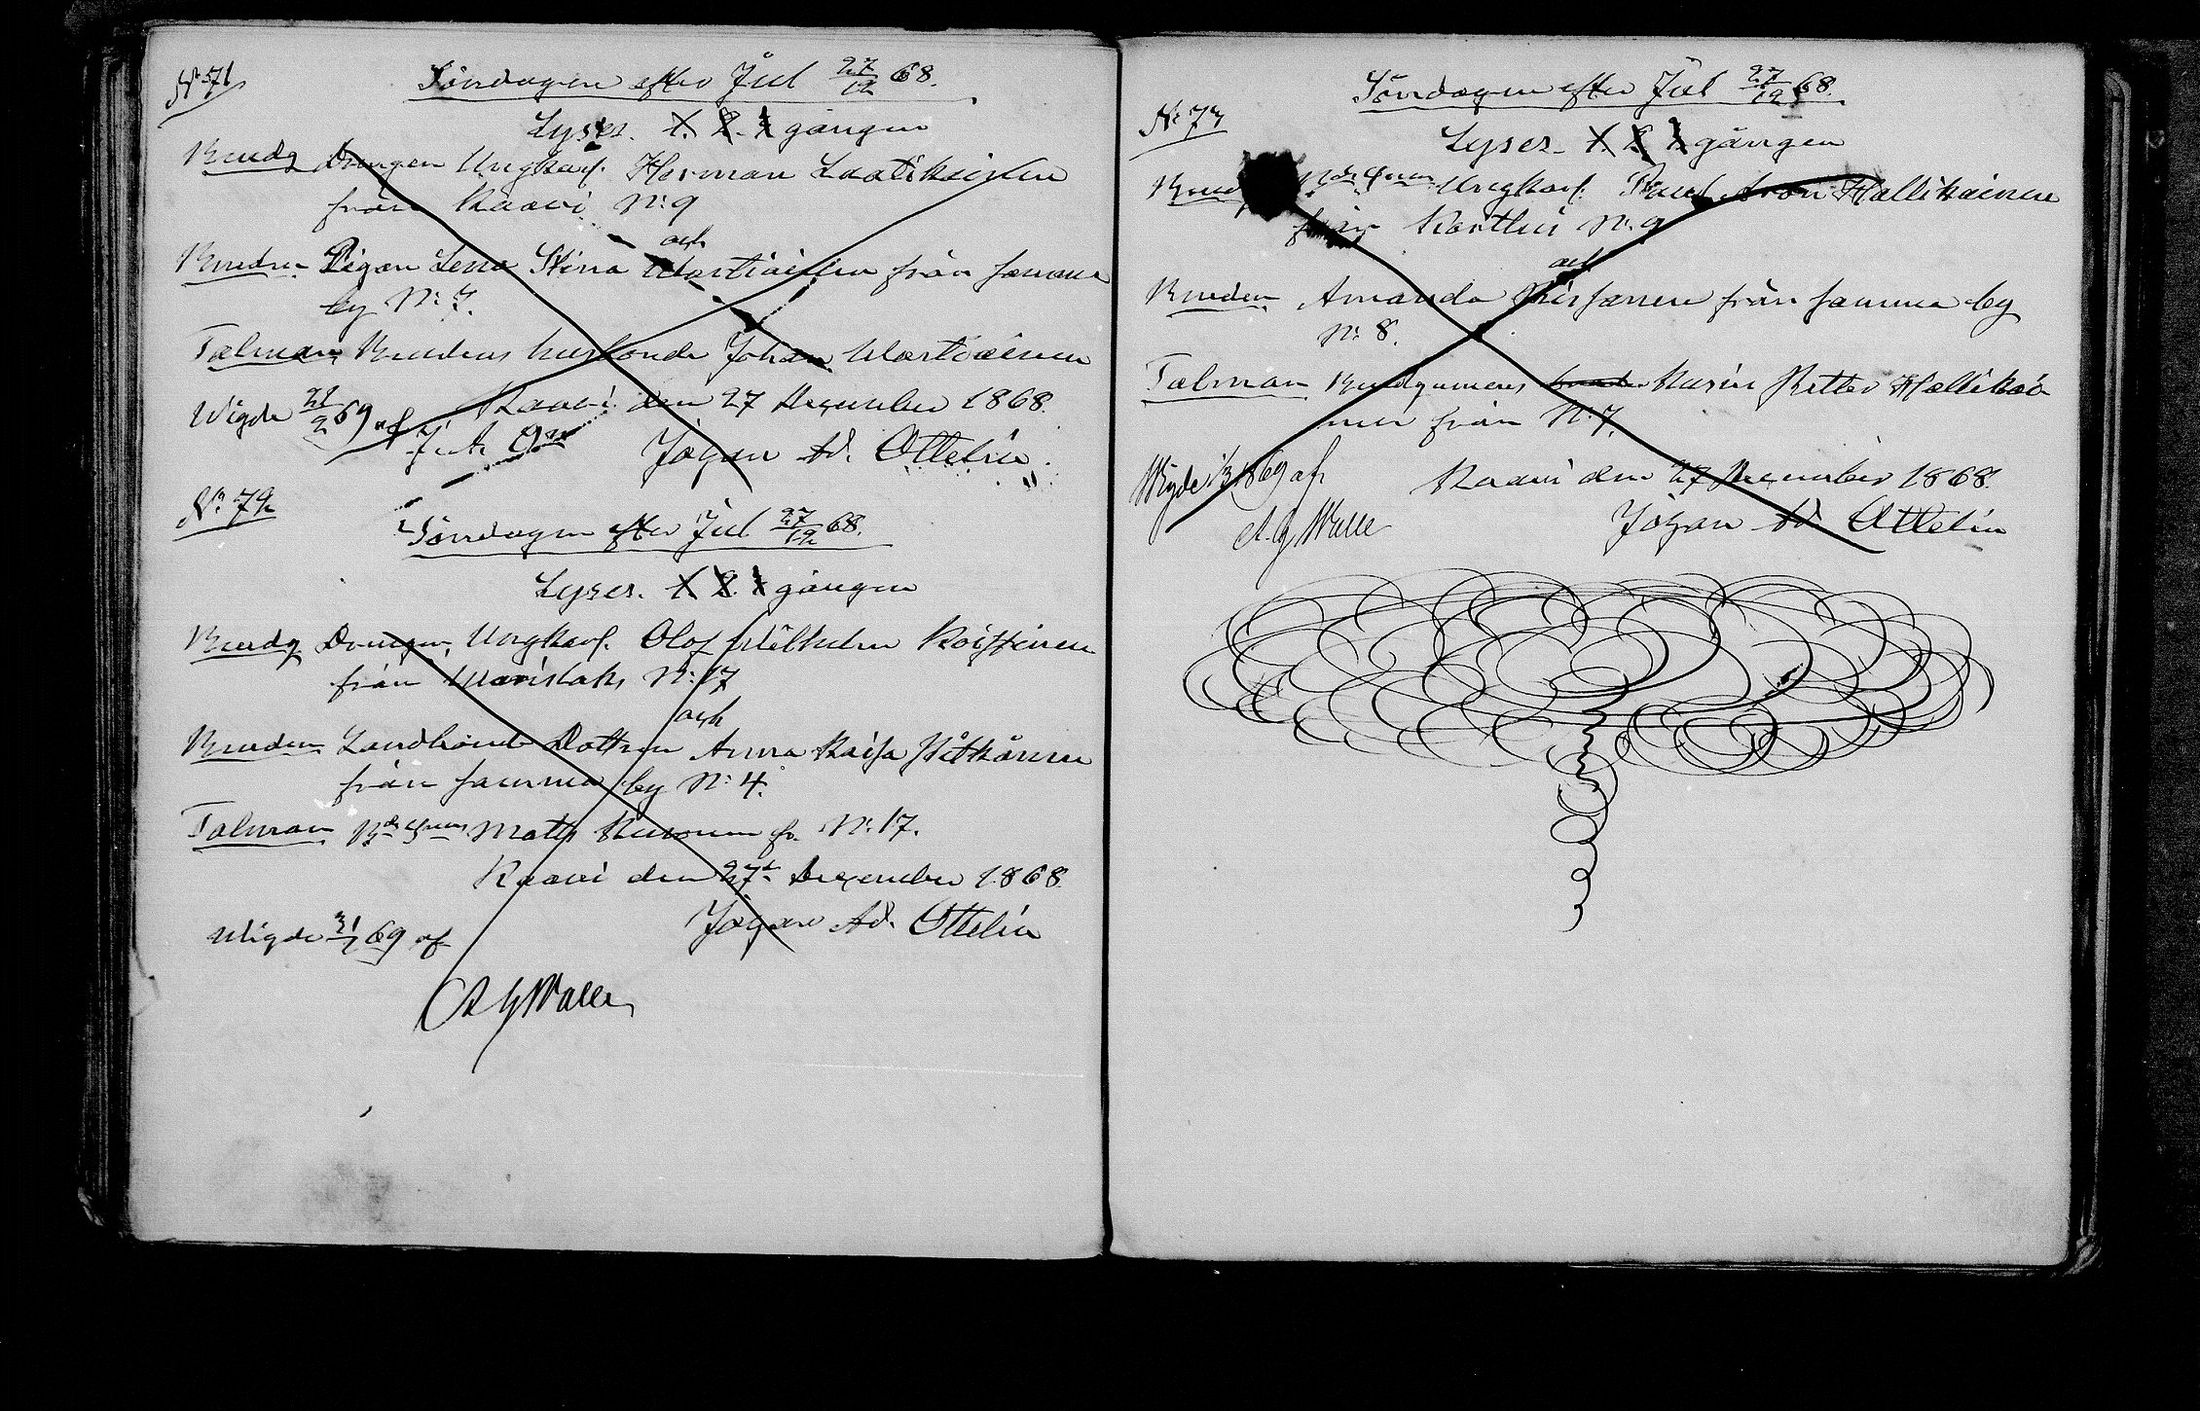 N:o 71
Söndagen efter Jul 27/12 68.
Lyses. 1. 2. 3 gången
Brudg Drengen Ungkarl. Herman Laatikainen
från Kaavi N:o 9
och
Bruden Pigan Lena Stina Wartiainen från samma
by N:o 7.
Talman Brudens husbonde Johan Wartiainen
Kaavi den 27 December 1868.
Wigde 21/2 69 af
Johan Ad. Ottelin
N:o 72
Söndagen efter Jul 27/12 68.
Lyses. 1. 2. 3 gången
Brudg Drengen, Ungkarl. Olof Wilhelm Koistinen
från Warislaks N:o 17
och
Bruden Landbonde Dottren Anna Kaisa Pitkänen
från samma by N:o 4.
Talman Bdgmns Matts fr. N:o 17.
Kaavi den 27 December 1868.
Johan Ad. Ottelin
Wigde 31/1 69 af
A G Walle
N:o 73
Söndagen efter Jul 27/12 68.
Lyses. 1. 2. 3 gången
Ungkarl. Paul Aron Hallikainen
från Kortteis N:o 9
och
Bruden Amanda från samma by
N:o 8.
Talman Brudgumens Kusin Petter Hallikai
nen från N:o 7.
Kaavi den 27 December 1868.
Wigde 69 af
Johan Ad. Ottelin
A. G Walle